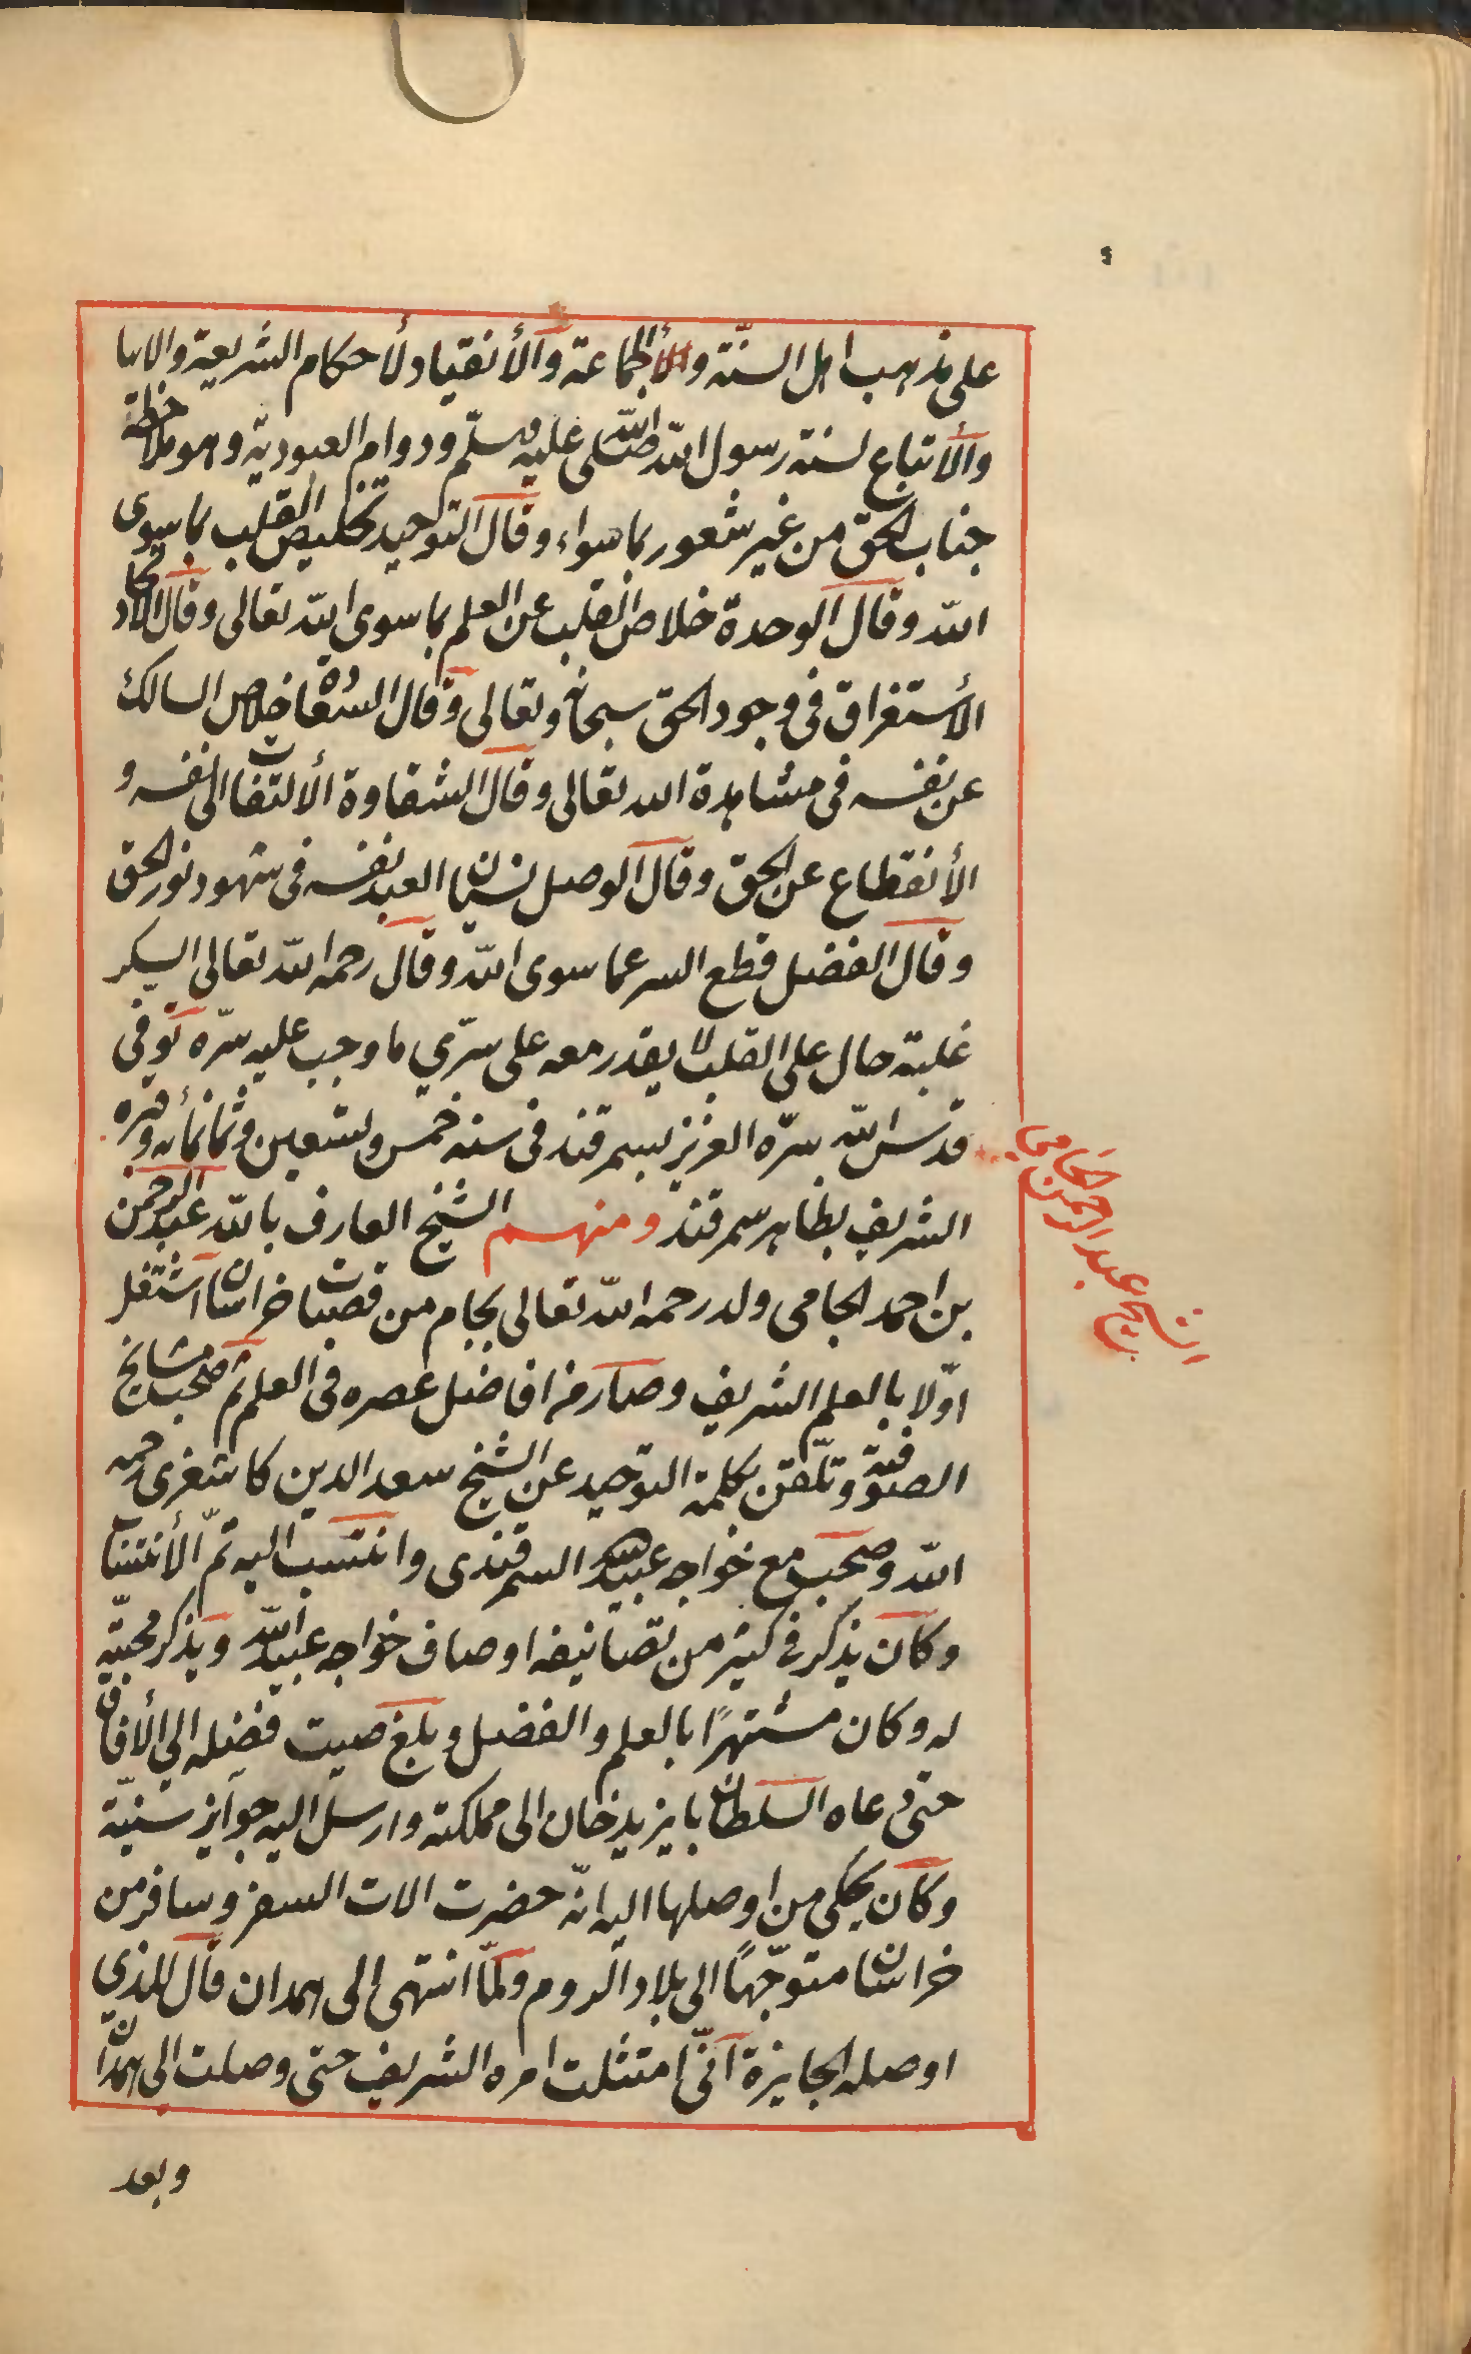 على مذهب اهل السنّة والجماعة والأنقياد لأحكام الشريعة والاىا
والأتباع لسنة رسول الله صلى الله عليه وسلّم ودوام العبوديّة وهو ملاحظة
جناب الحق من غير شعور بما سواء وقال التوحيد تخليص القلب بما سوى
الله وقال الوحدة خلاص القلب عن العلم بما سوى الله تعالى وقال الاتحاد
الأستغراق فى وجود الحق سبحانه وتعالى وقال السعادة خلاص السالك
عن نفسه فى مشاهدة الله تعالى وقال الشقاوة الألتفات الى نفسه و
الأنقطاع عن الحق وقال الوصل نسيان العبد نفسه فى شهود نور الحق
وقال الفضل قطع السر عما سوى الله وقال رحمه الله تعالى السكر
غلبة حال على القلب لا يقدر معه على سرّي ما وجب عليه سرّه توفى
قدس الله سرّه العزيز بسمرقند فى سنه خمس وتسعين وثمانمأئه وقبره
الشريف بظاهر سمرقند ومنهم الشيخ العارف بالله عبد الرحمن
بن احمد الجامى ولد رحمه الله تعالى بجام من قصبات خراسان اشتغل
اوّلا بالعلم الشريف وصار من افاضل عصره فى العلم ثم صحب مشايخ
الصوفية وتلّقن بكلمة التوحيد عن الشيخ سعد الدين كاشغرى رحمه
الله وصحب مع خواجه عبيد الله السمرقندى وانتسب اليه تمّ الأنتساب
وكان يذكر فى كثير من تصانيفه اوصاف خواجه عبيد الله ويذكر محبّته
له وكان مشتهرًا بالعلم والفضل وبلغ صيت فضله الي الأفاق
حتى دعاه السلطان بايزيد خان الى مملكته وارسل اليه جوايز سنيّة
وكان يحكى من اوصلها اليه انّه حضرت الات السفر وسافر من
خراسان متوجّهًا الى بلاد الروم ولمّا انتهى الى همدان قال للذي
اوصله الجايزة انّى امتثلت امره الشريف حتى وصلت الى همدان
وبعد
الشيخ عبد الرحمن الجامى